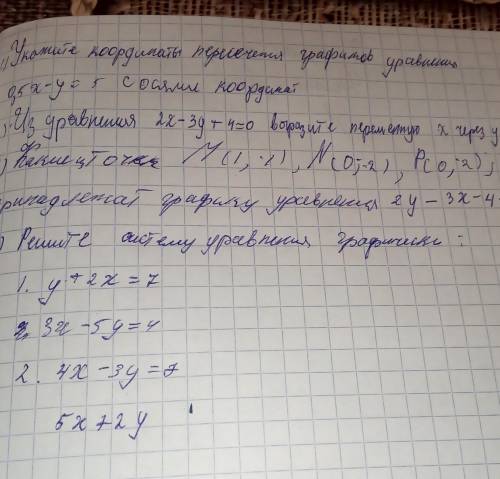 1) Укажите координаты пересечения графиков уравнения
0,5x-y=5 с осями координат
Из уравнения 2x-3y+4=0 выразите переменную x через y
) Какие точек M(1,-1), N(0;-2), P(0,-2),
принадлежат графику уравнения 2y-3x-4
) Решите систему уравнения графически:
1. y+2x=7
3x-5y=4
2. 4x-3y=7
5x+2y